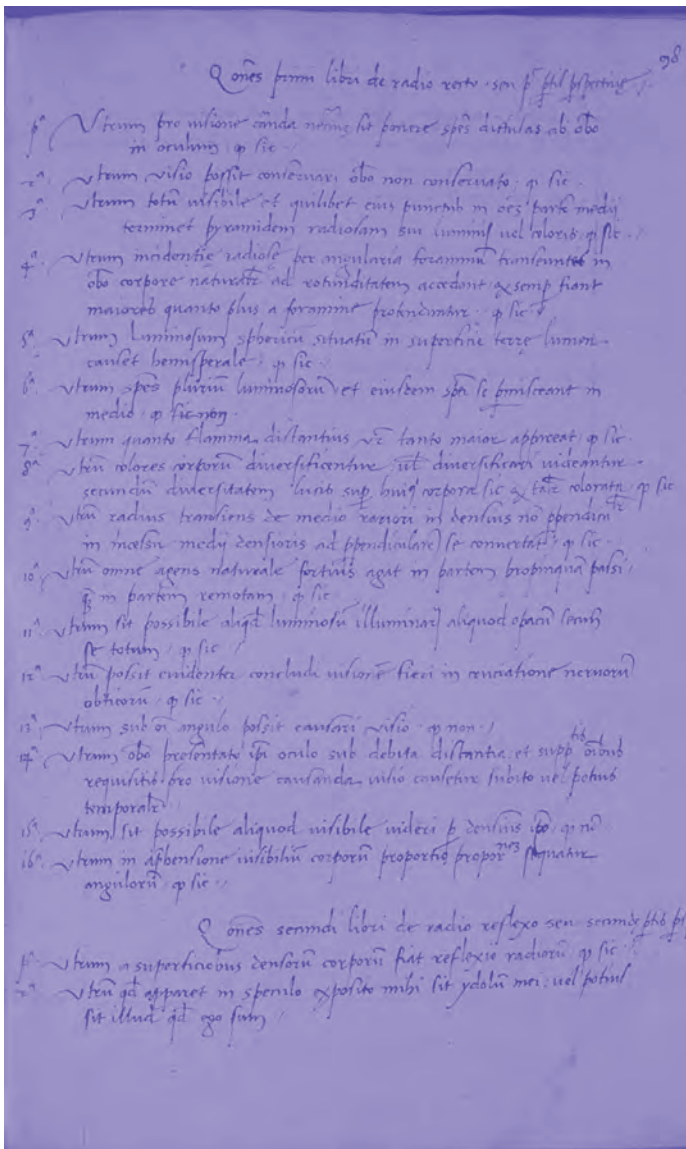 98
Q ones primi libri de radio recto. seu p͂ ptis perspective
pᵃ Utrum pro visione cānda necm̄ sit ponere spēs dictulas ab obo
in oculum. qͥ sic
2ᵃ Utrum visio possit conservari obo non conservato. qͥ sic
3ᵃ Utrum totū visibile et quilibet eius punctus in oēs partes medij
terminet pyramidem radiosam sui luminis vel coloris qͥ sic
4ᵃ Utrum incidentie radiose per angularia foraminū transeuntes in
obo corpore naturalr̄ ad rotunditatem accedont & semp fiant
maiores quanto plus a foramine protenduntur. qͥ sic
5ᵃ Utrum luminosum sphericū situatū in superficie terre lumen
causet hemisperale. qͥ sic
6ᵃ Utrum spēs pluriū luminosorū et eiusdem spēi se pmisceant in
medio. qͥ sic non
7ᵃ Utrum quanto flamma distantius vr̄ tanto maior appareat qͥ sic
8ᵃ Utrū colores corporū diversificentur vel diversificari videantur
secundū diversitatem lucis sup huiq corpora sic & talr̄ colorata. qͥ sic
9ᵃ Utrū radius transiens de medio rariori in densius nō ppendicutr̄
in incessu medij densioris ad ppendicularez se convertat. qͥ sic
10ᵃ Utrū omne agens naturale fortius agat in partem propinquā passi
q̄ in partem remotam. qͥ sic
11ᵃ Utrum sit possibile aliqd luminosū illuminarz aliquod opacū secun
se totum. qͥ sic
12ᵃ Utrū possit evidenter concludi visionē fieri in cruciatione nervorū
obticorū. qͥ sic
13ᵃ Utrum sub oī angulo possit causari visio. qͥ non
14ᵃ Utrum obo presentato ipi oculo sub debita distantia et supptis oībus
requisitis pro visione causanda visio causetur subito vel potius
temporalr̄
15ᵃ Utrum sit possibile aliquod visibile videri p densius ipo. qͥ nō
16ᵃ Utrum in aphensione visibiliū corporū proportio propornes sequatur
angulorū. qͥ sic
Q ones secundi libri de radio reflexo seu secunde ptis
pᵃ Utrum a superficiebus densorū corporū fiat reflexio radiorū qͥ sic
2ᵃ Utrū qd apparet in speculo exposito mihi sit ydolū mei vel potius
sit illud qd ego sum